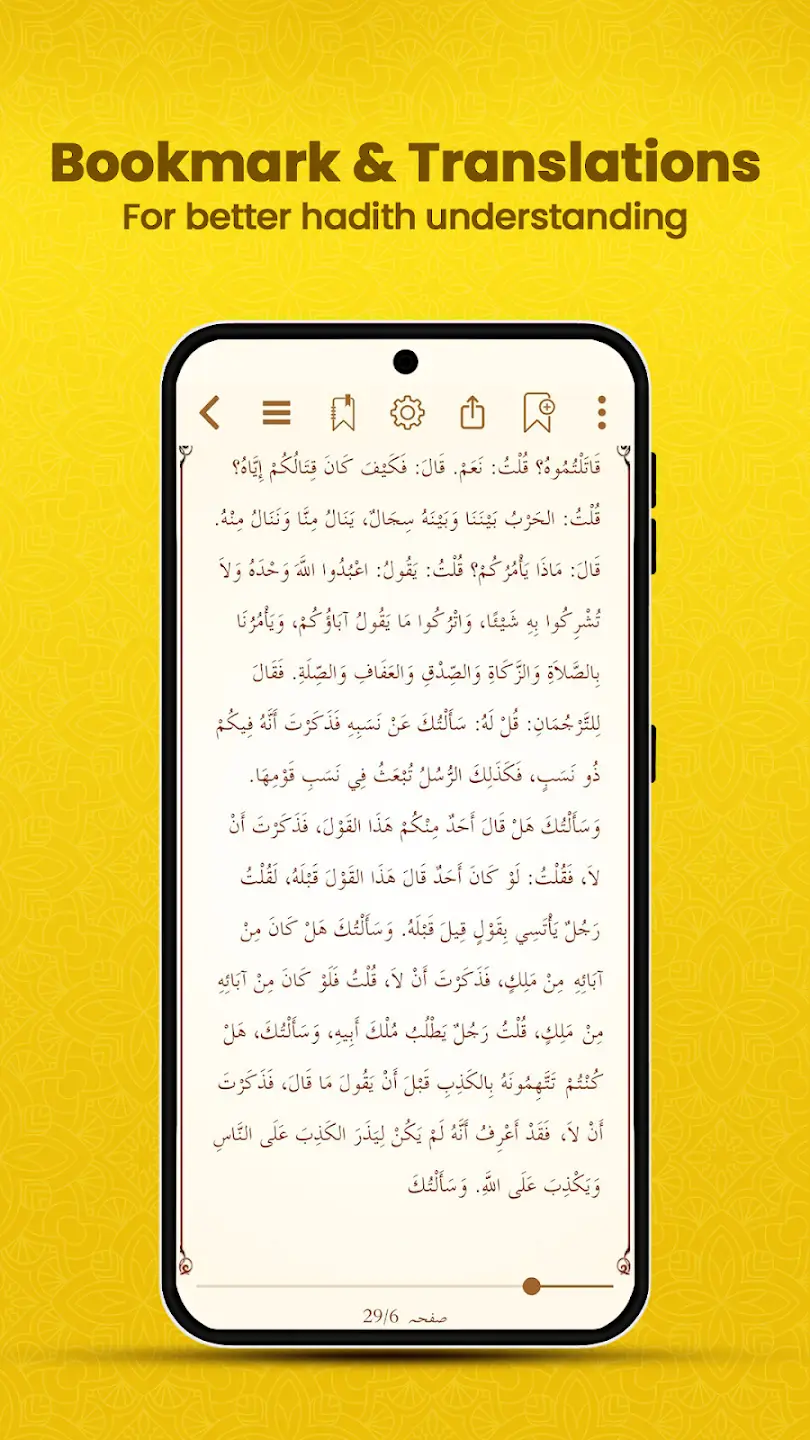 Bookmark & Translations
For better hadith understanding
قَاتَلْتُمُوهُ؟ قُلْتُ: نَعَمْ. قَالَ: فَكَيْفَ كَانَ قِتَالُكُمْ إِيَّاهُ؟
قُلْتُ: الحَرْبُ بَيْنَنَا وَبَيْنَهُ سِجَالٌ، يَنَالُ مِنَّا وَنَنَالُ مِنْهُ.
قَالَ: مَاذَا يَأْمُرُكُمْ؟ قُلْتُ: يَقُولُ: اعْبُدُوا اللَّهَ وَحْدَهُ وَلاَ
تُشْرِكُوا بِهِ شَيْئًا، وَاتْرُكُوا مَا يَقُولُ آبَاؤُكُمْ، وَيَأْمُرُنَا
بِالصَّلاَةِ وَالزَّكَاةِ وَالصِّدْقِ وَالعَفَافِ وَالصِّلَةِ. فَقَالَ
لِلتَّرْجُمَانِ: قُلْ لَهُ: سَأَلْتُكَ عَنْ نَسَبِهِ فَذَكَرْتَ أَنَّهُ فِيكُمْ
ذُو نَسَبٍ، فَكَذَلِكَ الرُّسُلُ تُبْعَثُ فِي نَسَبِ قَوْمِهَا.
وَسَأَلْتُكَ هَلْ قَالَ أَحَدٌ مِنْكُمْ هَذَا القَوْلَ، فَذَكَرْتَ أَنْ
لاَ، فَقُلْتُ: لَوْ كَانَ أَحَدٌ قَالَ هَذَا القَوْلَ قَبْلَهُ، لَقُلْتُ
رَجُلٌ يَأْتَسِي بِقَوْلٍ قِيلَ قَبْلَهُ. وَسَأَلْتُكَ هَلْ كَانَ مِنْ
آبَائِهِ مِنْ مَلِكٍ، فَذَكَرْتَ أَنْ لاَ، قُلْتُ فَلَوْ كَانَ مِنْ آبَائِهِ
مِنْ مَلِكٍ، قُلْتُ رَجُلٌ يَطْلُبُ مُلْكَ أَبِيهِ، وَسَأَلْتُكَ، هَلْ
كُنْتُمْ تَتَّهِمُونَهُ بِالكَذِبِ قَبْلَ أَنْ يَقُولَ مَا قَالَ، فَذَكَرْتَ
أَنْ لاَ، فَقَدْ أَعْرِفُ أَنَّهُ لَمْ يَكُنْ لِيَذَرَ الكَذِبَ عَلَى النَّاسِ
وَيَكْذِبَ عَلَى اللَّهِ. وَسَأَلْتُكَ
صفحہ 29/6